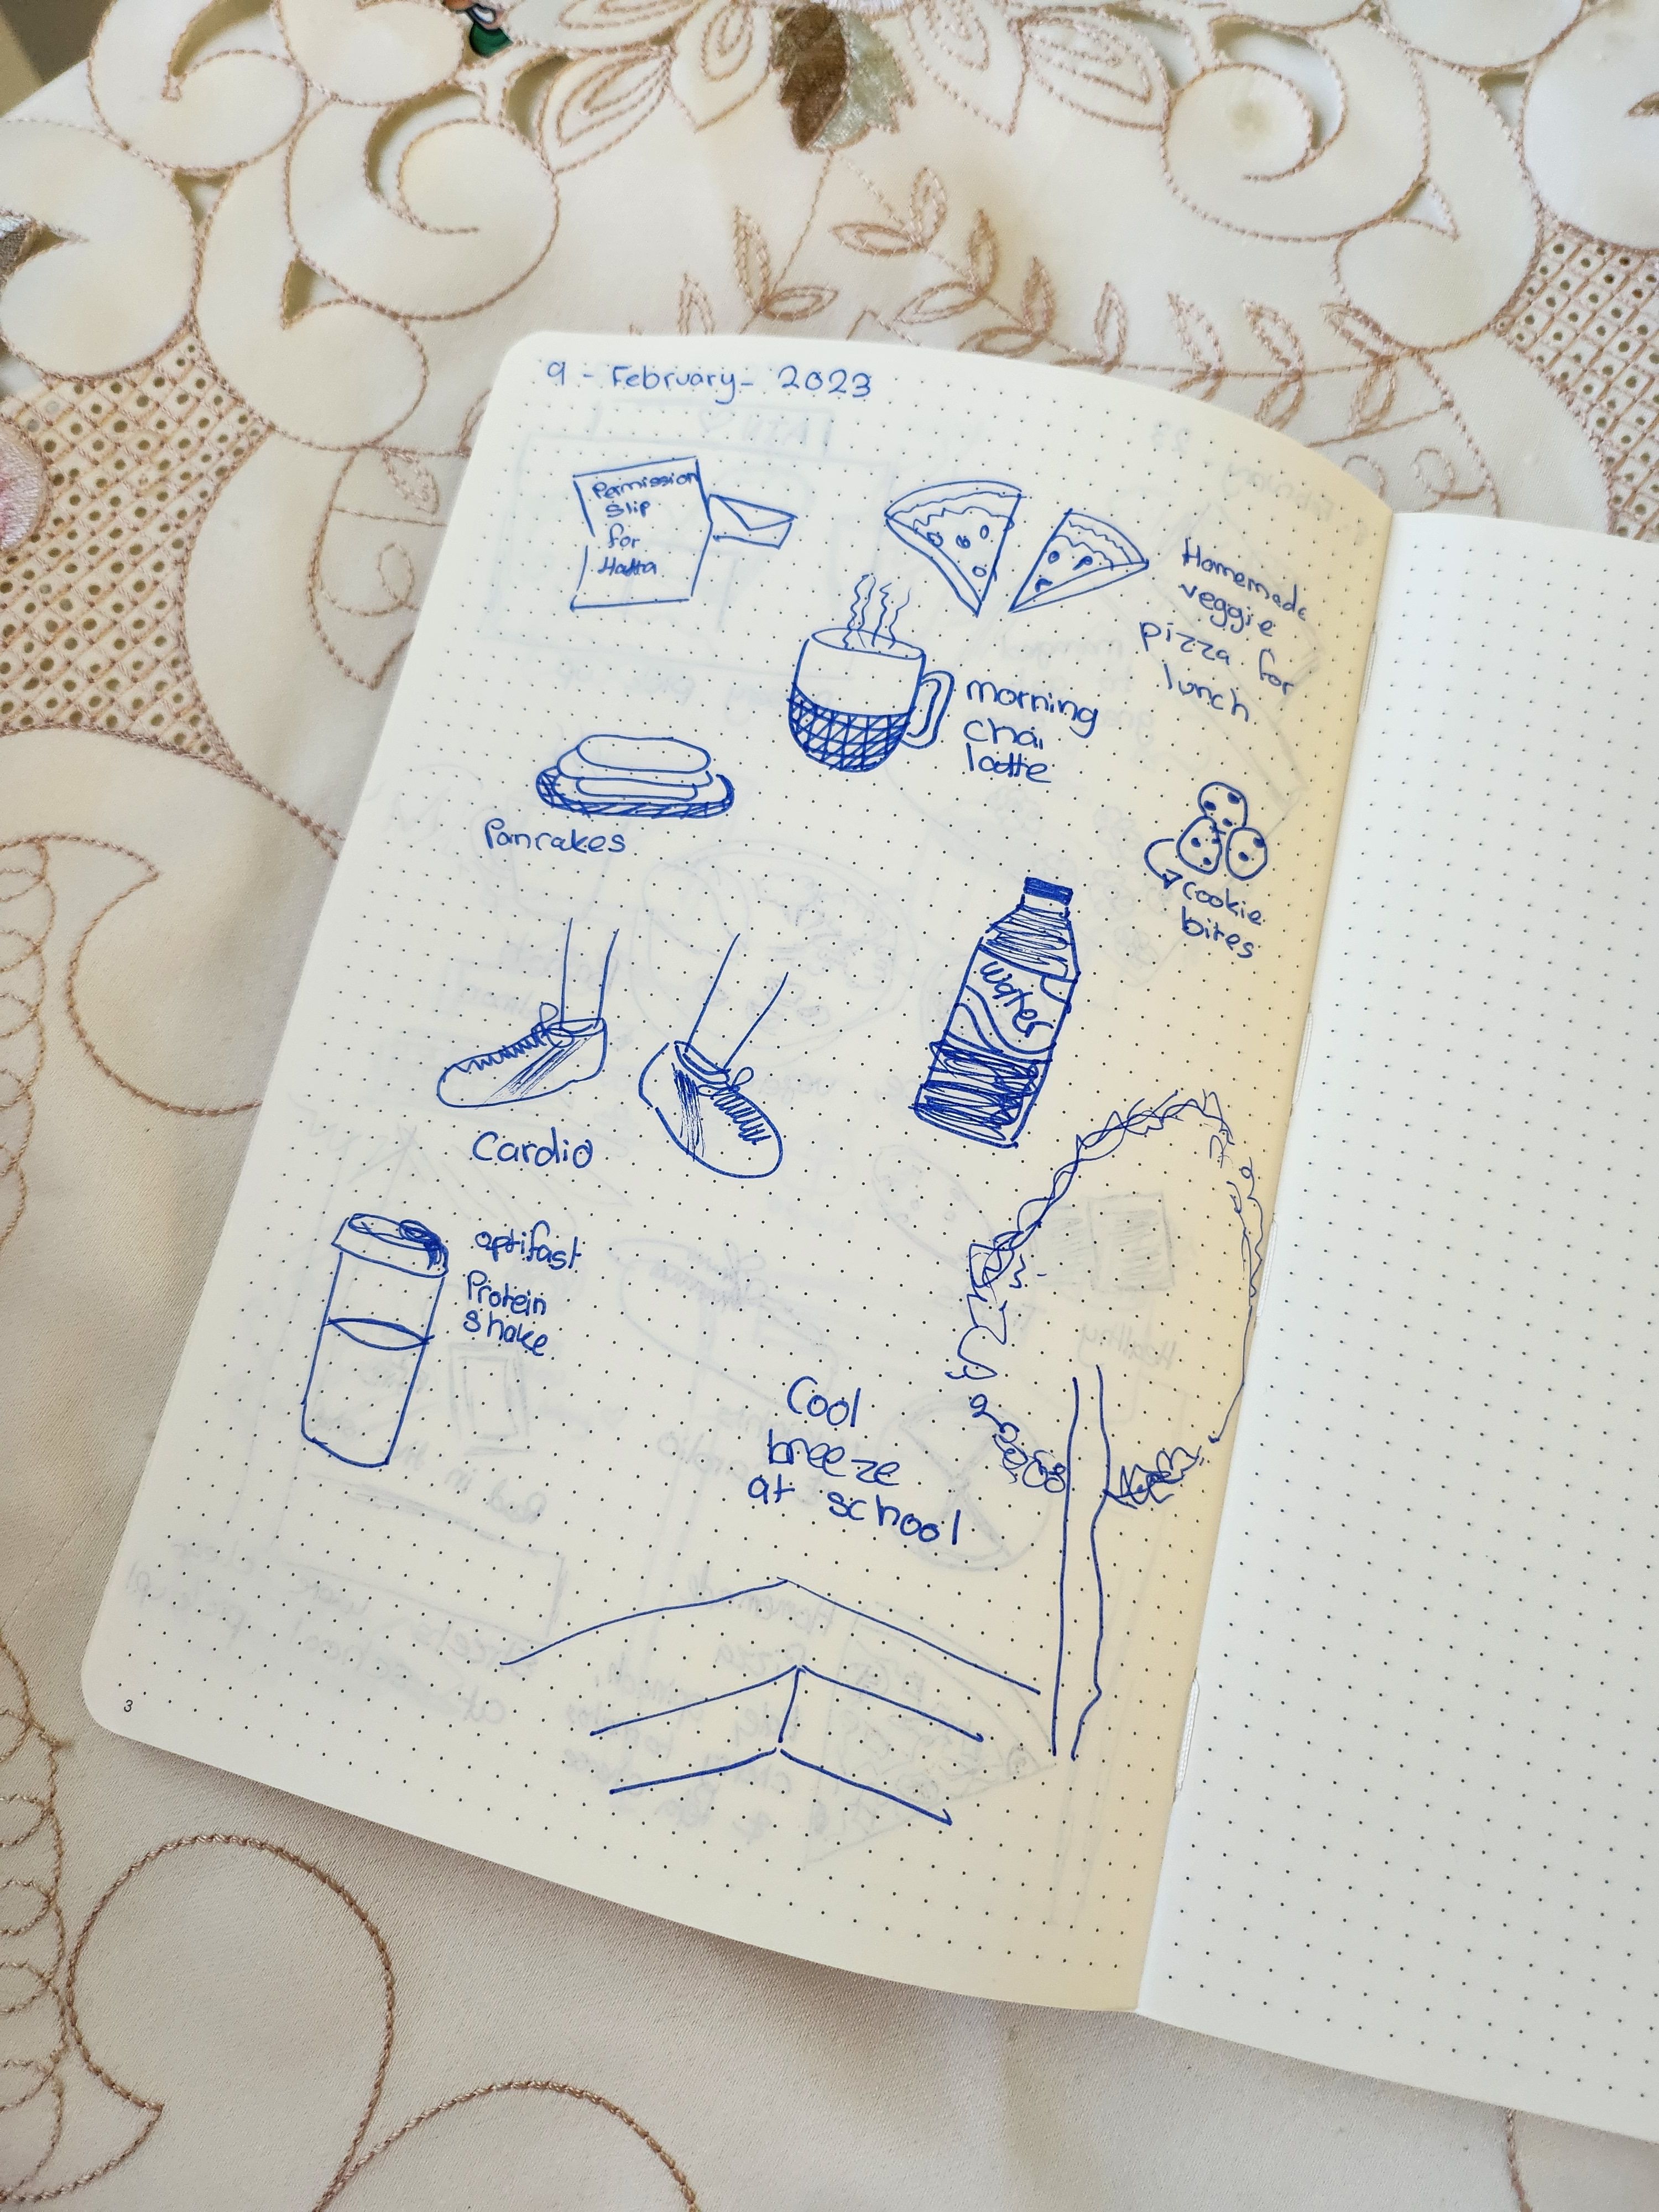 9 - February - 2023
Permission
slip
for
Hatta
Homemade
veggie
pizza for
lunch
morning
chai
latte
Panrakes
cookie
bites
water
Cardio
optifast
Protein
shake
Cool
breeze
at school
3